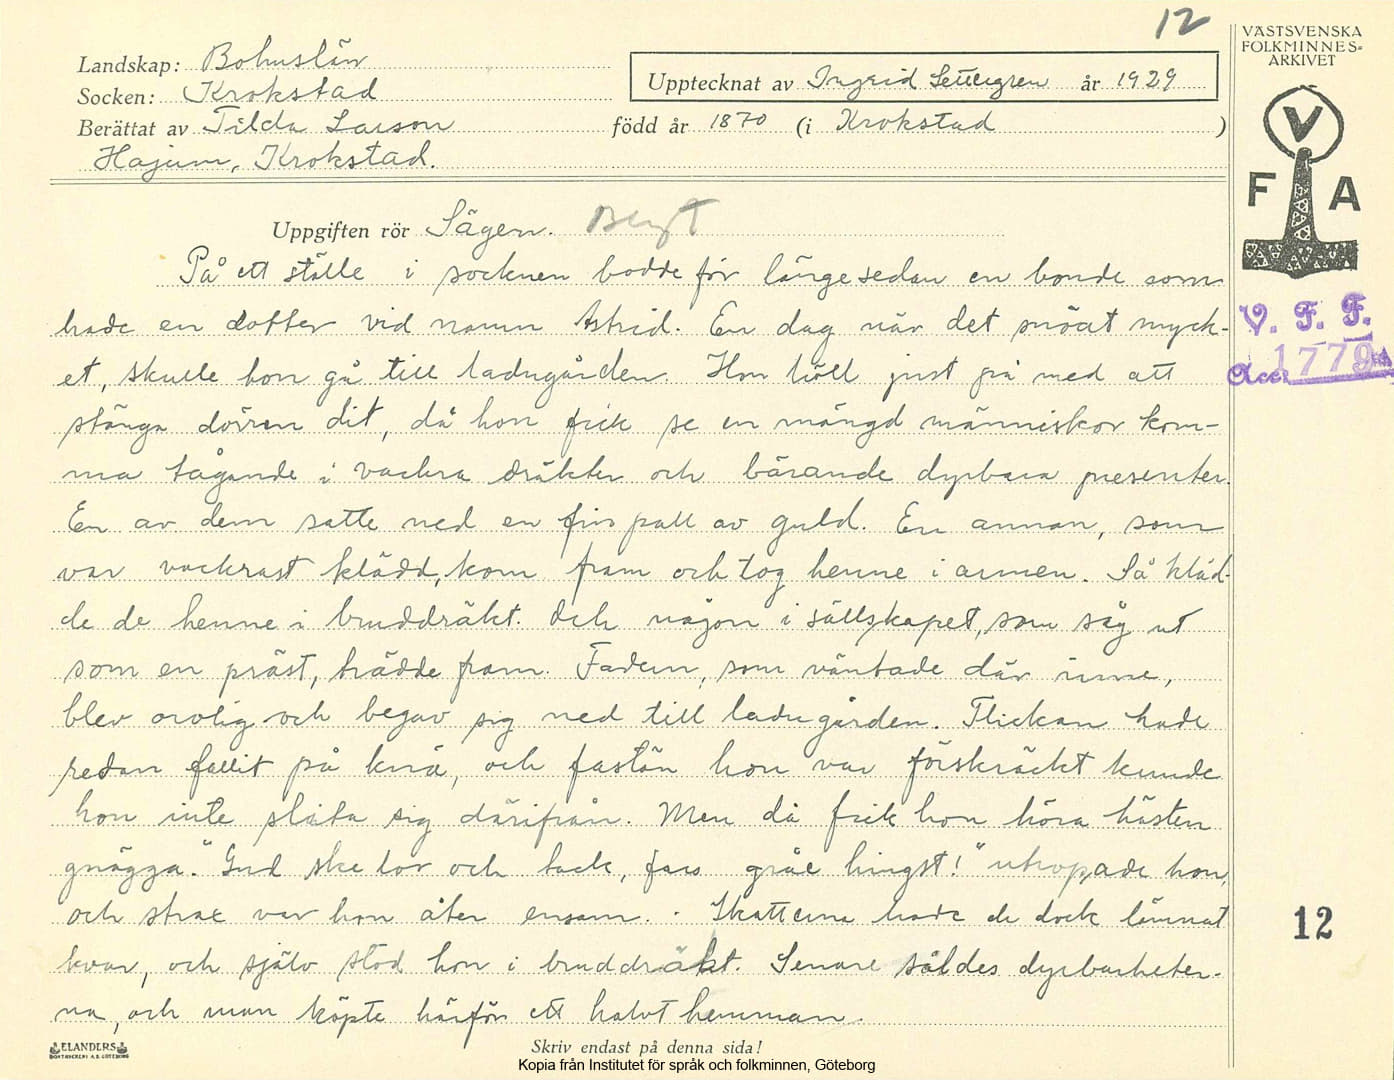 12
VÄSTSVENSKA
FOLKMINNES=
ARKIVET
Landskap: Bohuslän
Socken: Krokstad
Upptecknat av Ingrid år 1929
Berättat av Tilda Larson född år 1870 (i Krokstad )
Hajum, Krokstad.
V
F A
Uppgiften rör Sägen. Bergt
På ett ställe i socknen bodde för länge sedan en bonde som
hade en dotter vid namn Astrid. En dag när det snöat myck-
et, skulle hon gå till ladugården. Hon höll just på med att
stänga dörren dit, då hon fick se en mängd människor kom-
ma tågande i vackra dräkter och bärande dyrbara presenter.
En av dem satte ned en fin pall av guld. En annan, som
var vackrast klädd, kom fram och tog henne i armen. Så kläd-
de de henne i bruddräkt. Och någon i sällskapet, som såg ut
som en präst, trädde fram. Fadern, som väntade där inne,
blev orolig och begav sig ned till ladugården. Flickan hade
redan fallit på knä, och fastän hon var förskräckt kunde
hon inte slita sig därifrån. Men då fick hon höra hästen
gnägga. "Gud ske lov och tack, fars gråe hingst!" utropade hon,
och strax var hon åter ensam. - Skatterna hade de dock lämnat
kvar, och själv stod hon i bruddräkt. Senare såldes dyrbarheter-
na, och man köpte härför ett halvt hemman.
V. F. F.
Acc. 1779
12
ELANDERS
BOKTRYCKERI A.B. GÖTEBORG
Skriv endast på denna sida!
Kopia från Institutet för språk och folkminnen, Göteborg